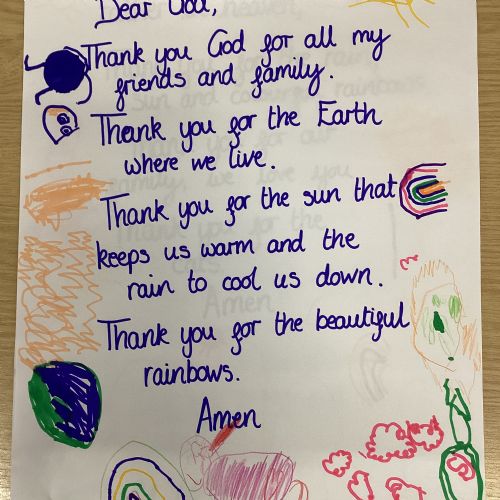 Dear God,
Thank you God for all my
friends and family.
Thank you for the Earth
where we live.
Thank you for the sun that
keeps us warm and the
rain to cool us down.
Thank you for the beautiful
rainbows.
Amen